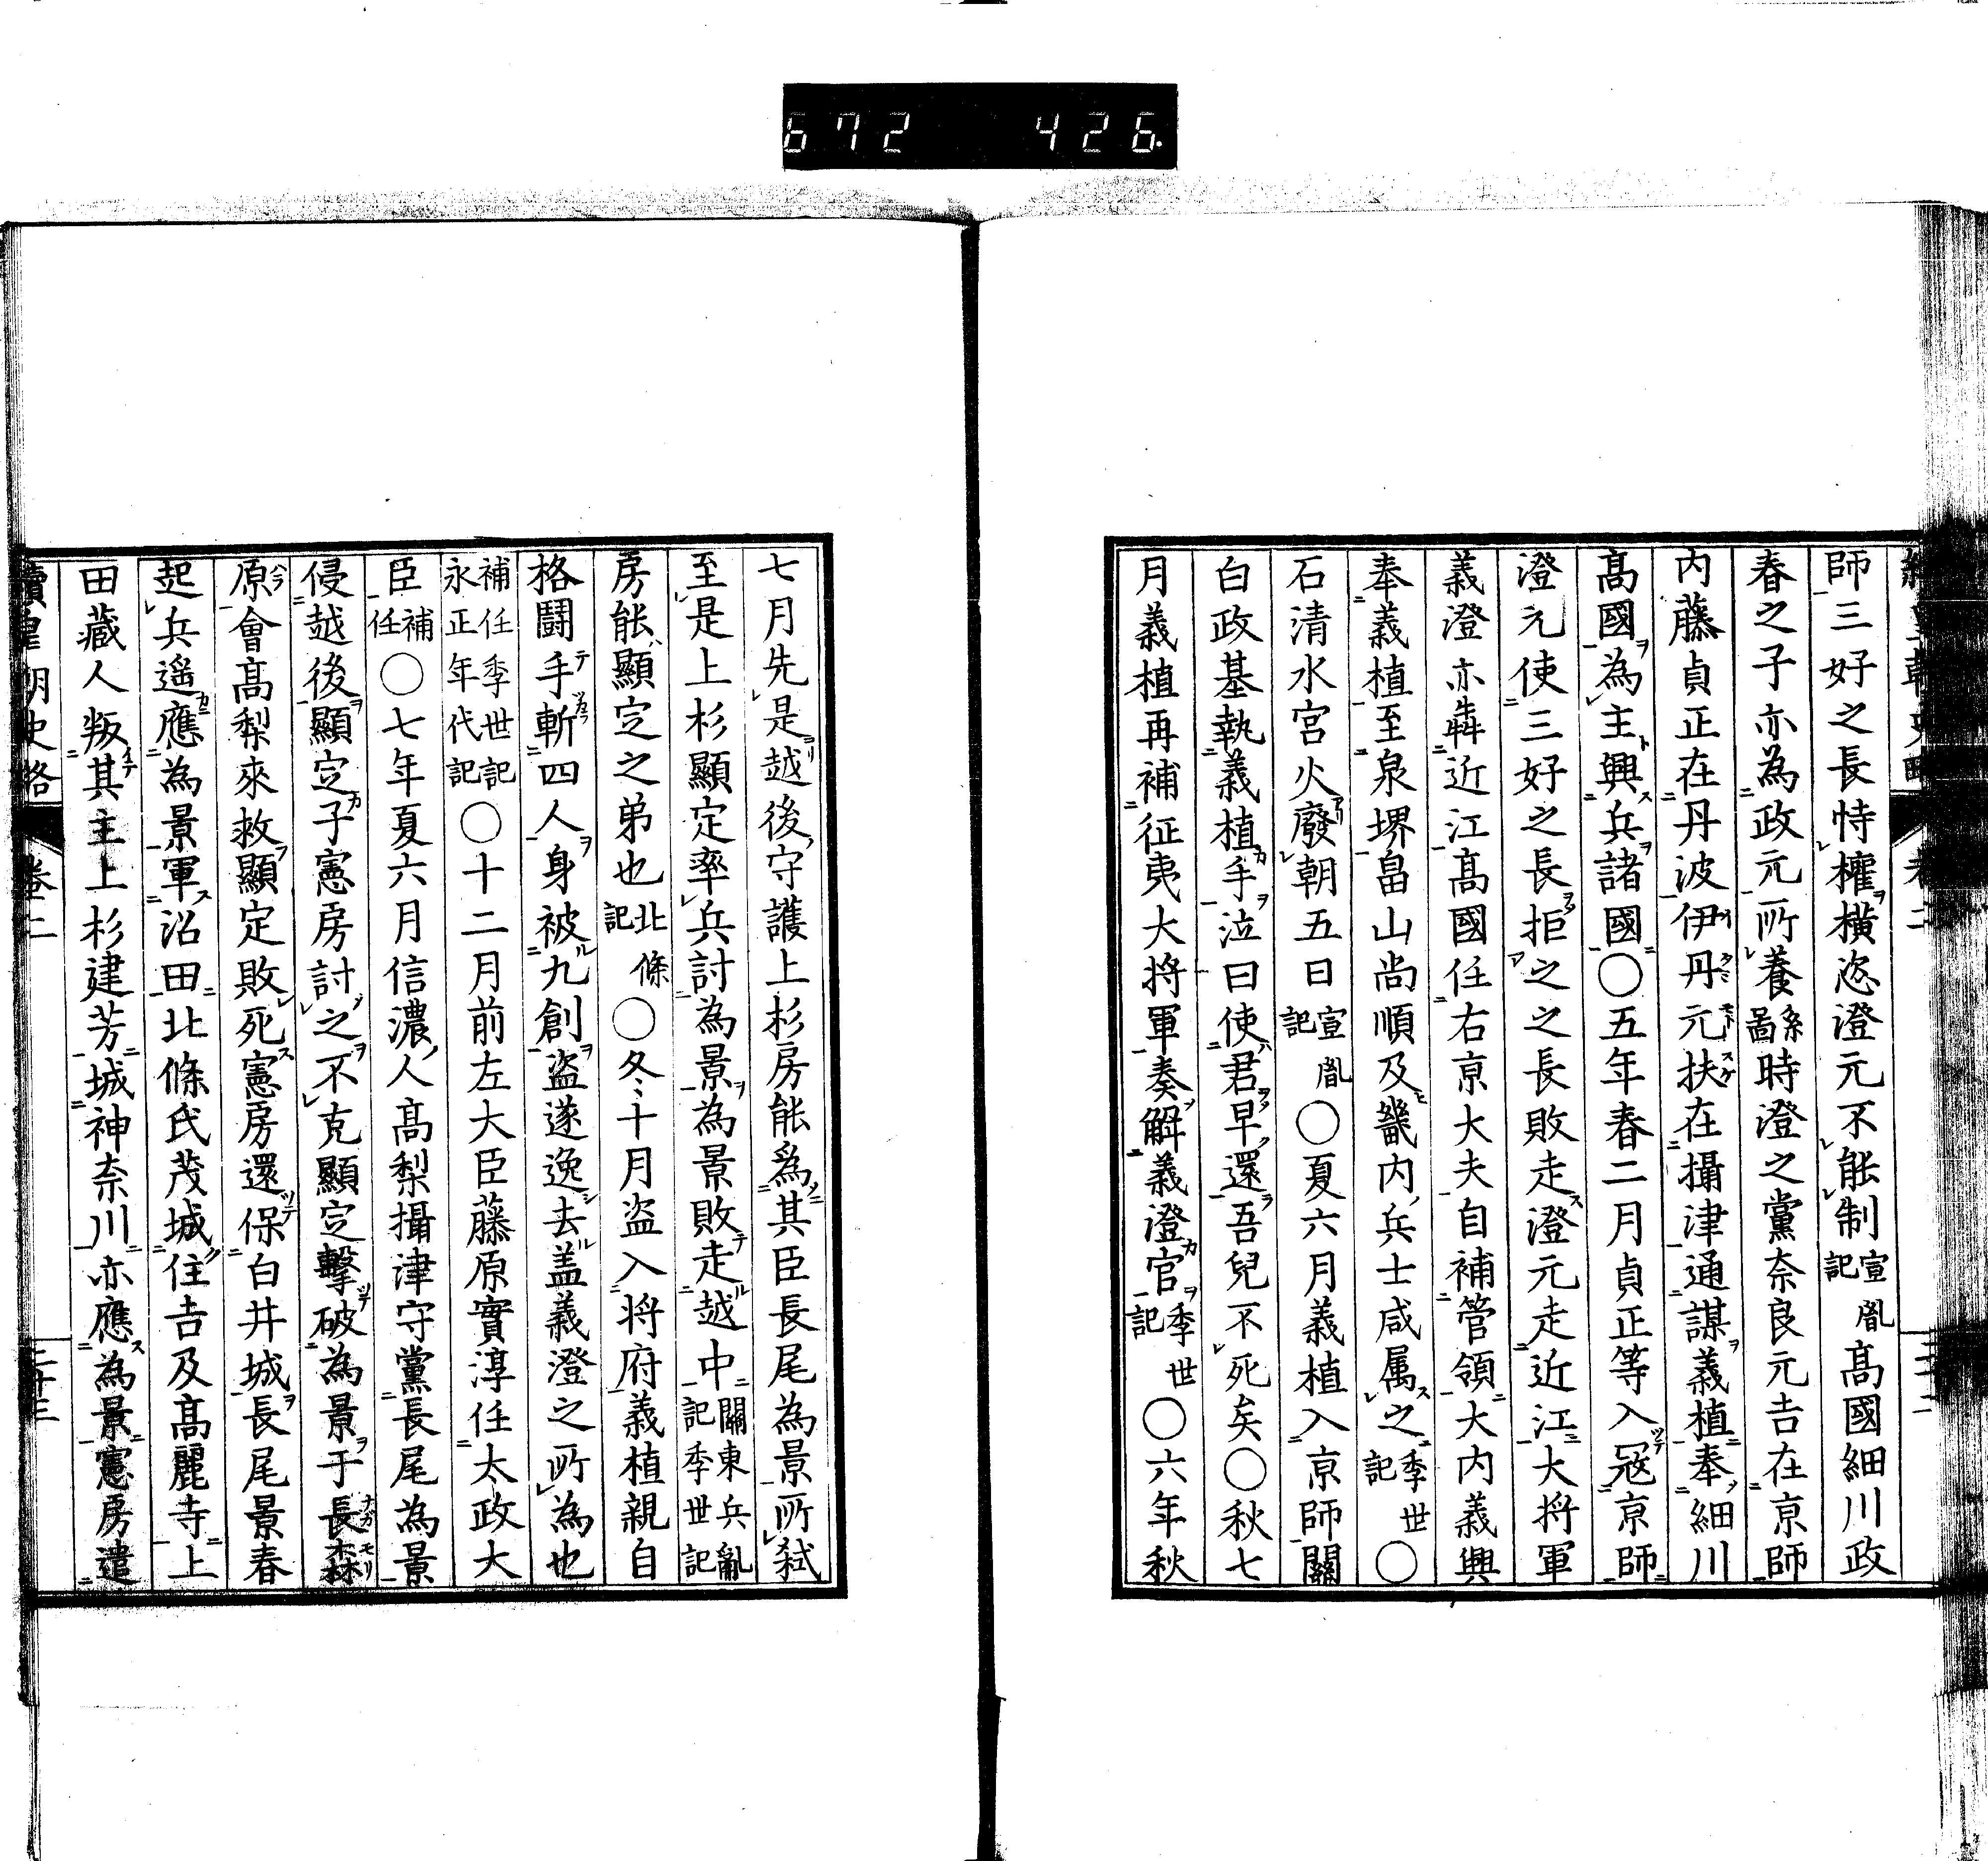 672 426
師三好之長恃權横恣澄元不能制宣胤記高國細川政
春之子亦為政元所養系圖時澄之黨奈良元吉在京師
内藤貞正在丹波伊丹元扶在攝津通謀義植奉細川
高國為主興兵諸國〇五年春二月貞正等入冦京師
澄元使三好之長拒之之長敗走澄元走近江大将軍
義澄亦犇近江高國任右京大夫自補管領大内義興
奉義植至泉堺畠山尚順及畿内兵士咸属之季世記〇
石清水宮火廢朝五日宣胤記〇夏六月義植入京師關
白政基執義植手泣曰使君早還吾兒不死矣〇秋七
月義植再補征夷大将軍奏解義澄官季世記〇六年秋
七月先是越後守護上杉房能為其臣長尾為景所弑
至是上杉顯定率兵討為景為景敗走越中關東兵亂記季世記
房能顯定之弟也北條記〇冬十月盗入将府義植親自
格鬪手斬四人身被九創盗遂逸去盖義澄之所為也
補任季世記永正年代記〇十二月前左大臣藤原實淳任太政大
臣補任〇七年夏六月信濃人高梨攝津守黨長尾為景
侵越後顯定子憲房討之不克顯定擊破為景于長森
原會高梨來救顯定敗死憲房還保白井城長尾景春
起兵遥應為景軍沼田北條氏茂城住吉及高麗寺上
田藏人叛其主上杉建芳城神奈川亦應為景憲房遣
續皇朝史略 卷二 二十三